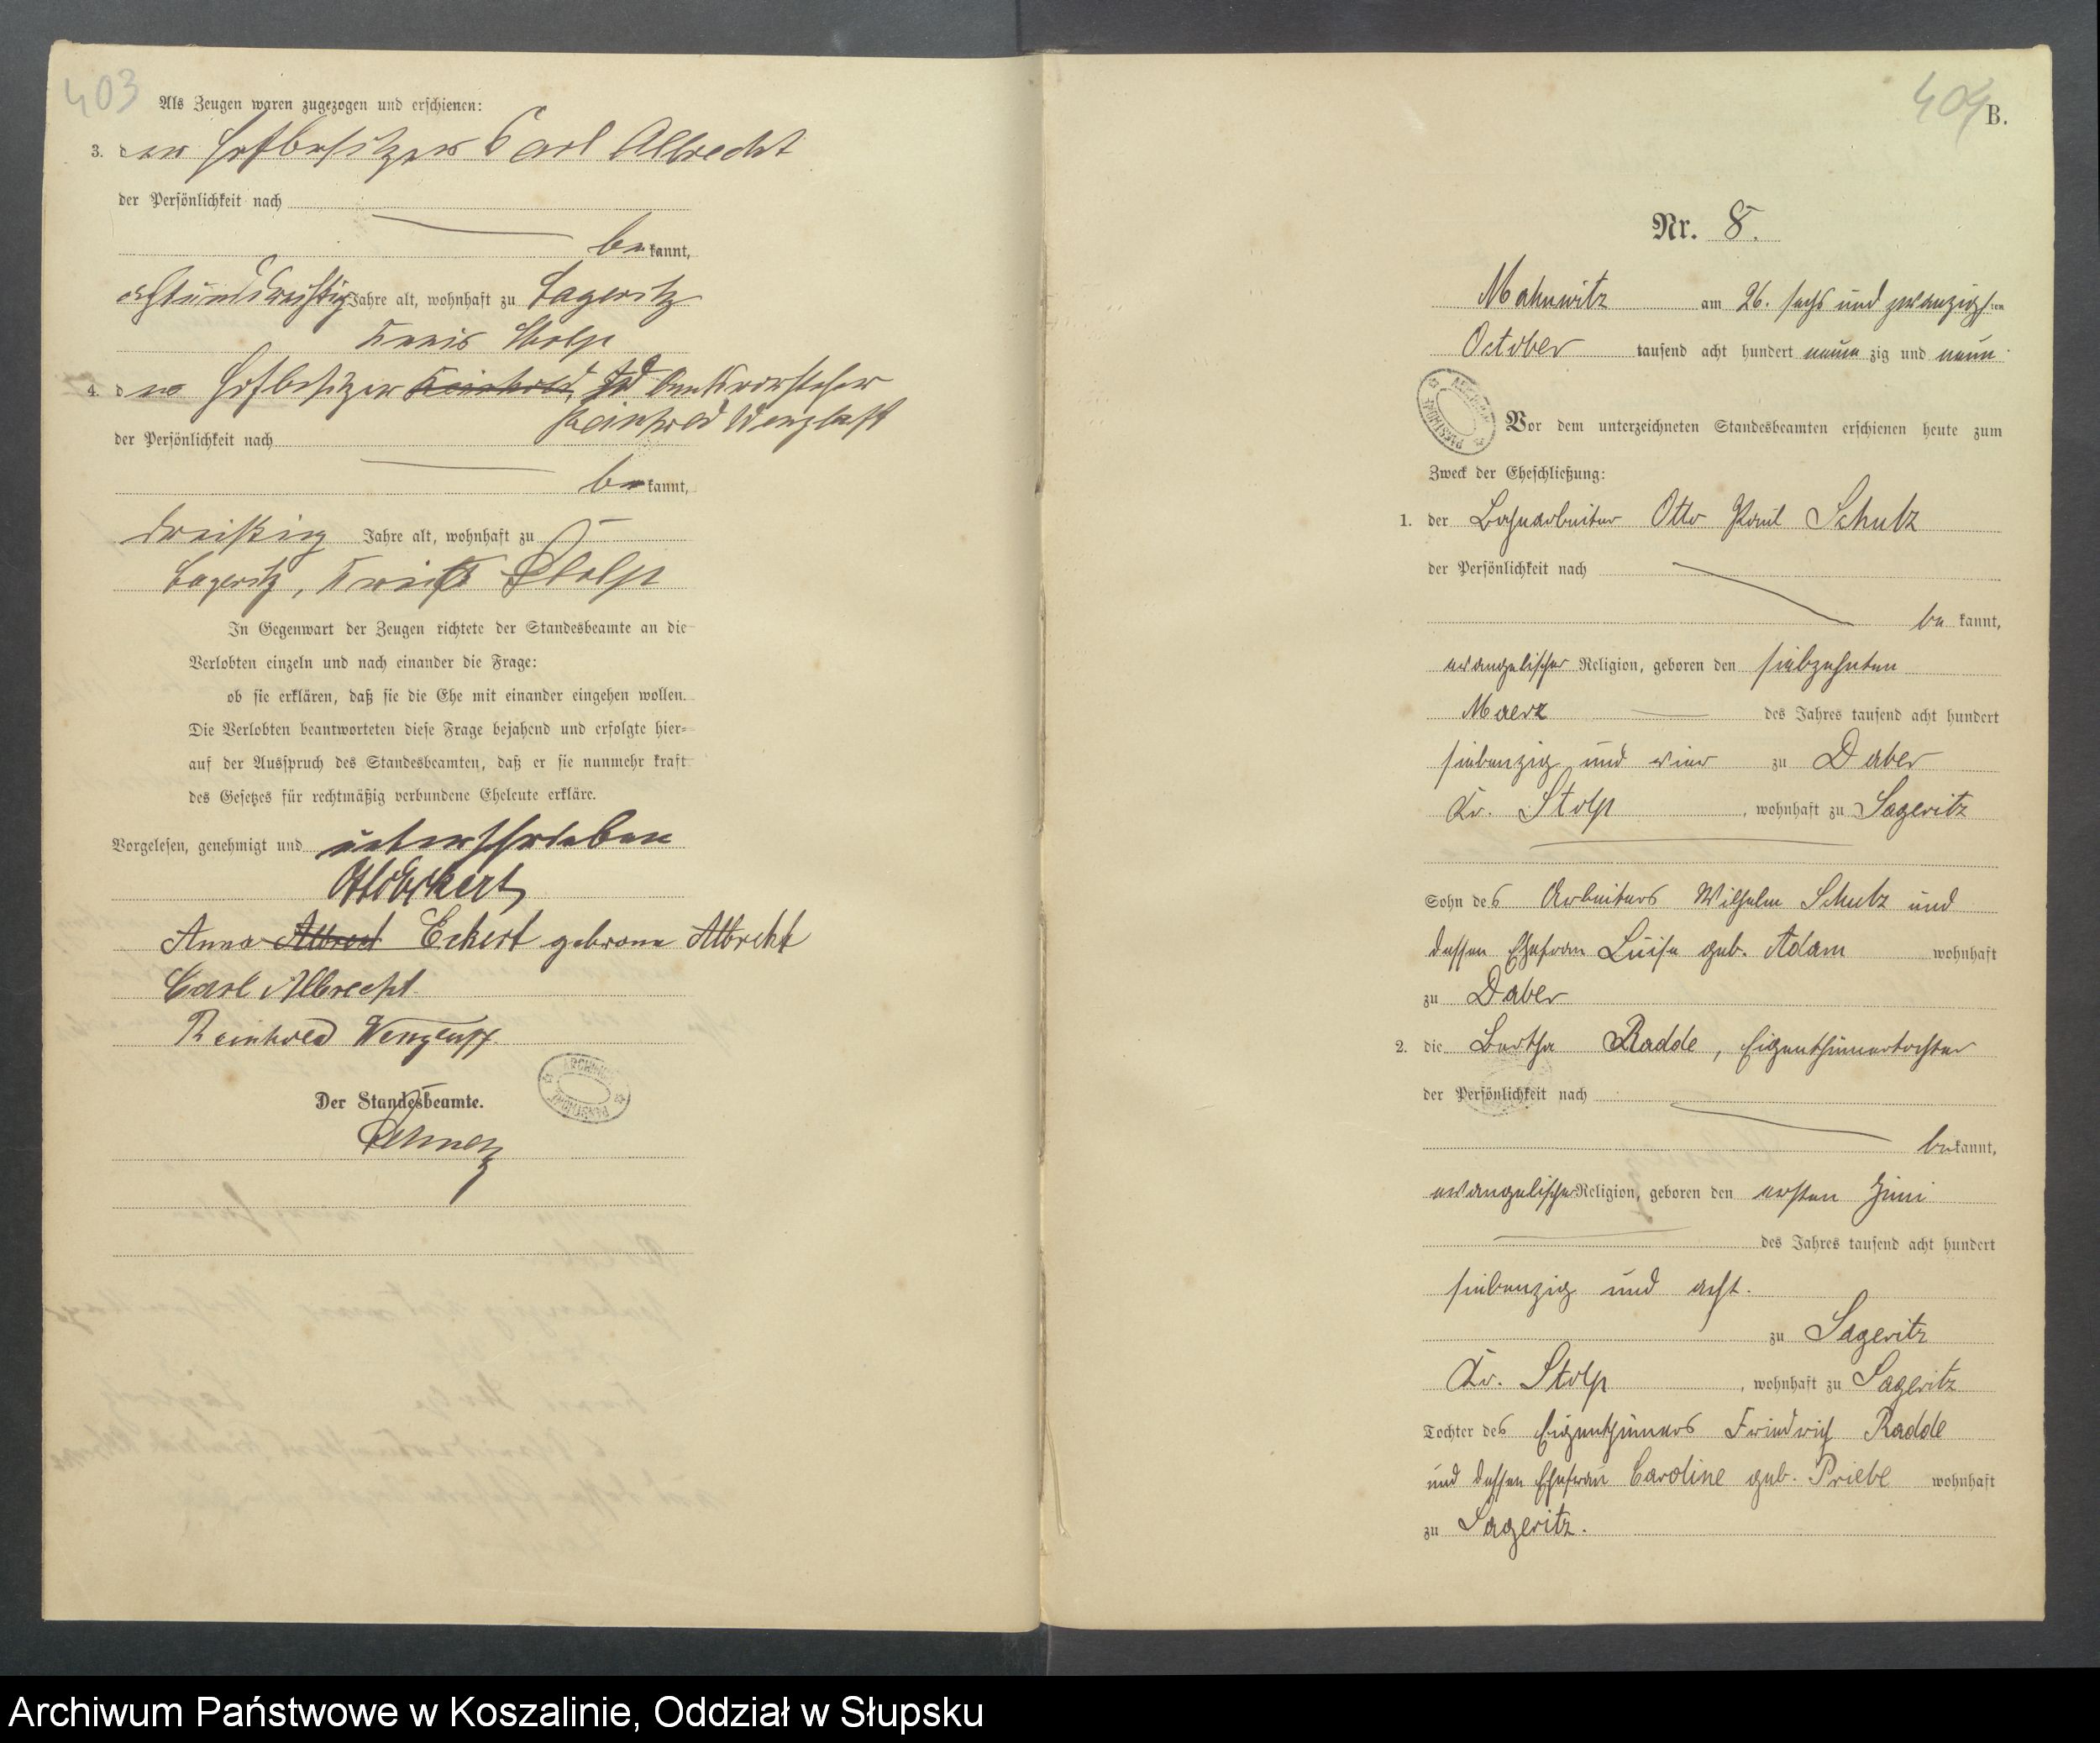 403
Als Zeugen waren zugezogen und erschienen:
3. der Hofbesitzer Carl Albrecht
der Persönlichkeit nach
be kannt,
achtunddreißig Jahre alt, wohnhaft zu Sageritz
Kreis Stolp
4. der Hofbesitzer Reinhold und Amtsvorsteher
Reinhold Wenzlaff
der Persönlichkeit nach
be kannt,
dreißig Jahre alt, wohnhaft zu
Sageritz, Kreis Stolp
In Gegenwart der Zeugen richtete der Standesbeamte an die
Verlobten einzeln und nach einander die Frage:
ob sie erklären, daß sie die Ehe mit einander eingehen wollen.
Die Verlobten beantworteten diese Frage bejahend und erfolgte hier-
auf der Ausspruch des Standesbeamten, daß er sie nunmehr kraft
des Gesetzes für rechtmäßig verbundene Eheleute erkläre.
Vorgelesen, genehmigt und unterschrieben
Otto Eckert
Anna Albrect Eckert geborene Albrecht
Carl Albrecht
Reinhold Wenzlaff
Der Standesbeamte.
404
B.
Nr. 8.
Mahnwitz am 26. sechs und zwanzigsten
October tausend acht hundert neun zig und neun
Vor dem unterzeichneten Standesbeamten erschienen heute zum
Zweck der Eheschließung:
1. der Bahnarbeiter Otto Paul Schulz
der Persönlichkeit nach
be kannt,
evangelischer Religion, geboren den siebzehnten
Maerz des Jahres tausend acht hundert
siebenzig und vier zu Daber
Kr. Stolp, wohnhaft zu Sageritz
Sohn des Arbeiters Wilhelm Schulz und
dessen Ehefrau Luise geb. Adam wohnhaft
zu Daber
2. die Bertha Radde, Eigenthümertochter
der Persönlichkeit nach
be kannt,
evangelischer Religion, geboren den ersten Juni
des Jahres tausend acht hundert
siebenzig und acht.
zu Sageritz
Kr. Stolp, wohnhaft zu Sageritz
Tochter des Eigenthümers Friedrich Radde
und dessen Ehefrau Caroline geb. Priebe wohnhaft
zu Sageritz.
Archiwum Państwowe w Koszalinie, Oddział w Słupsku